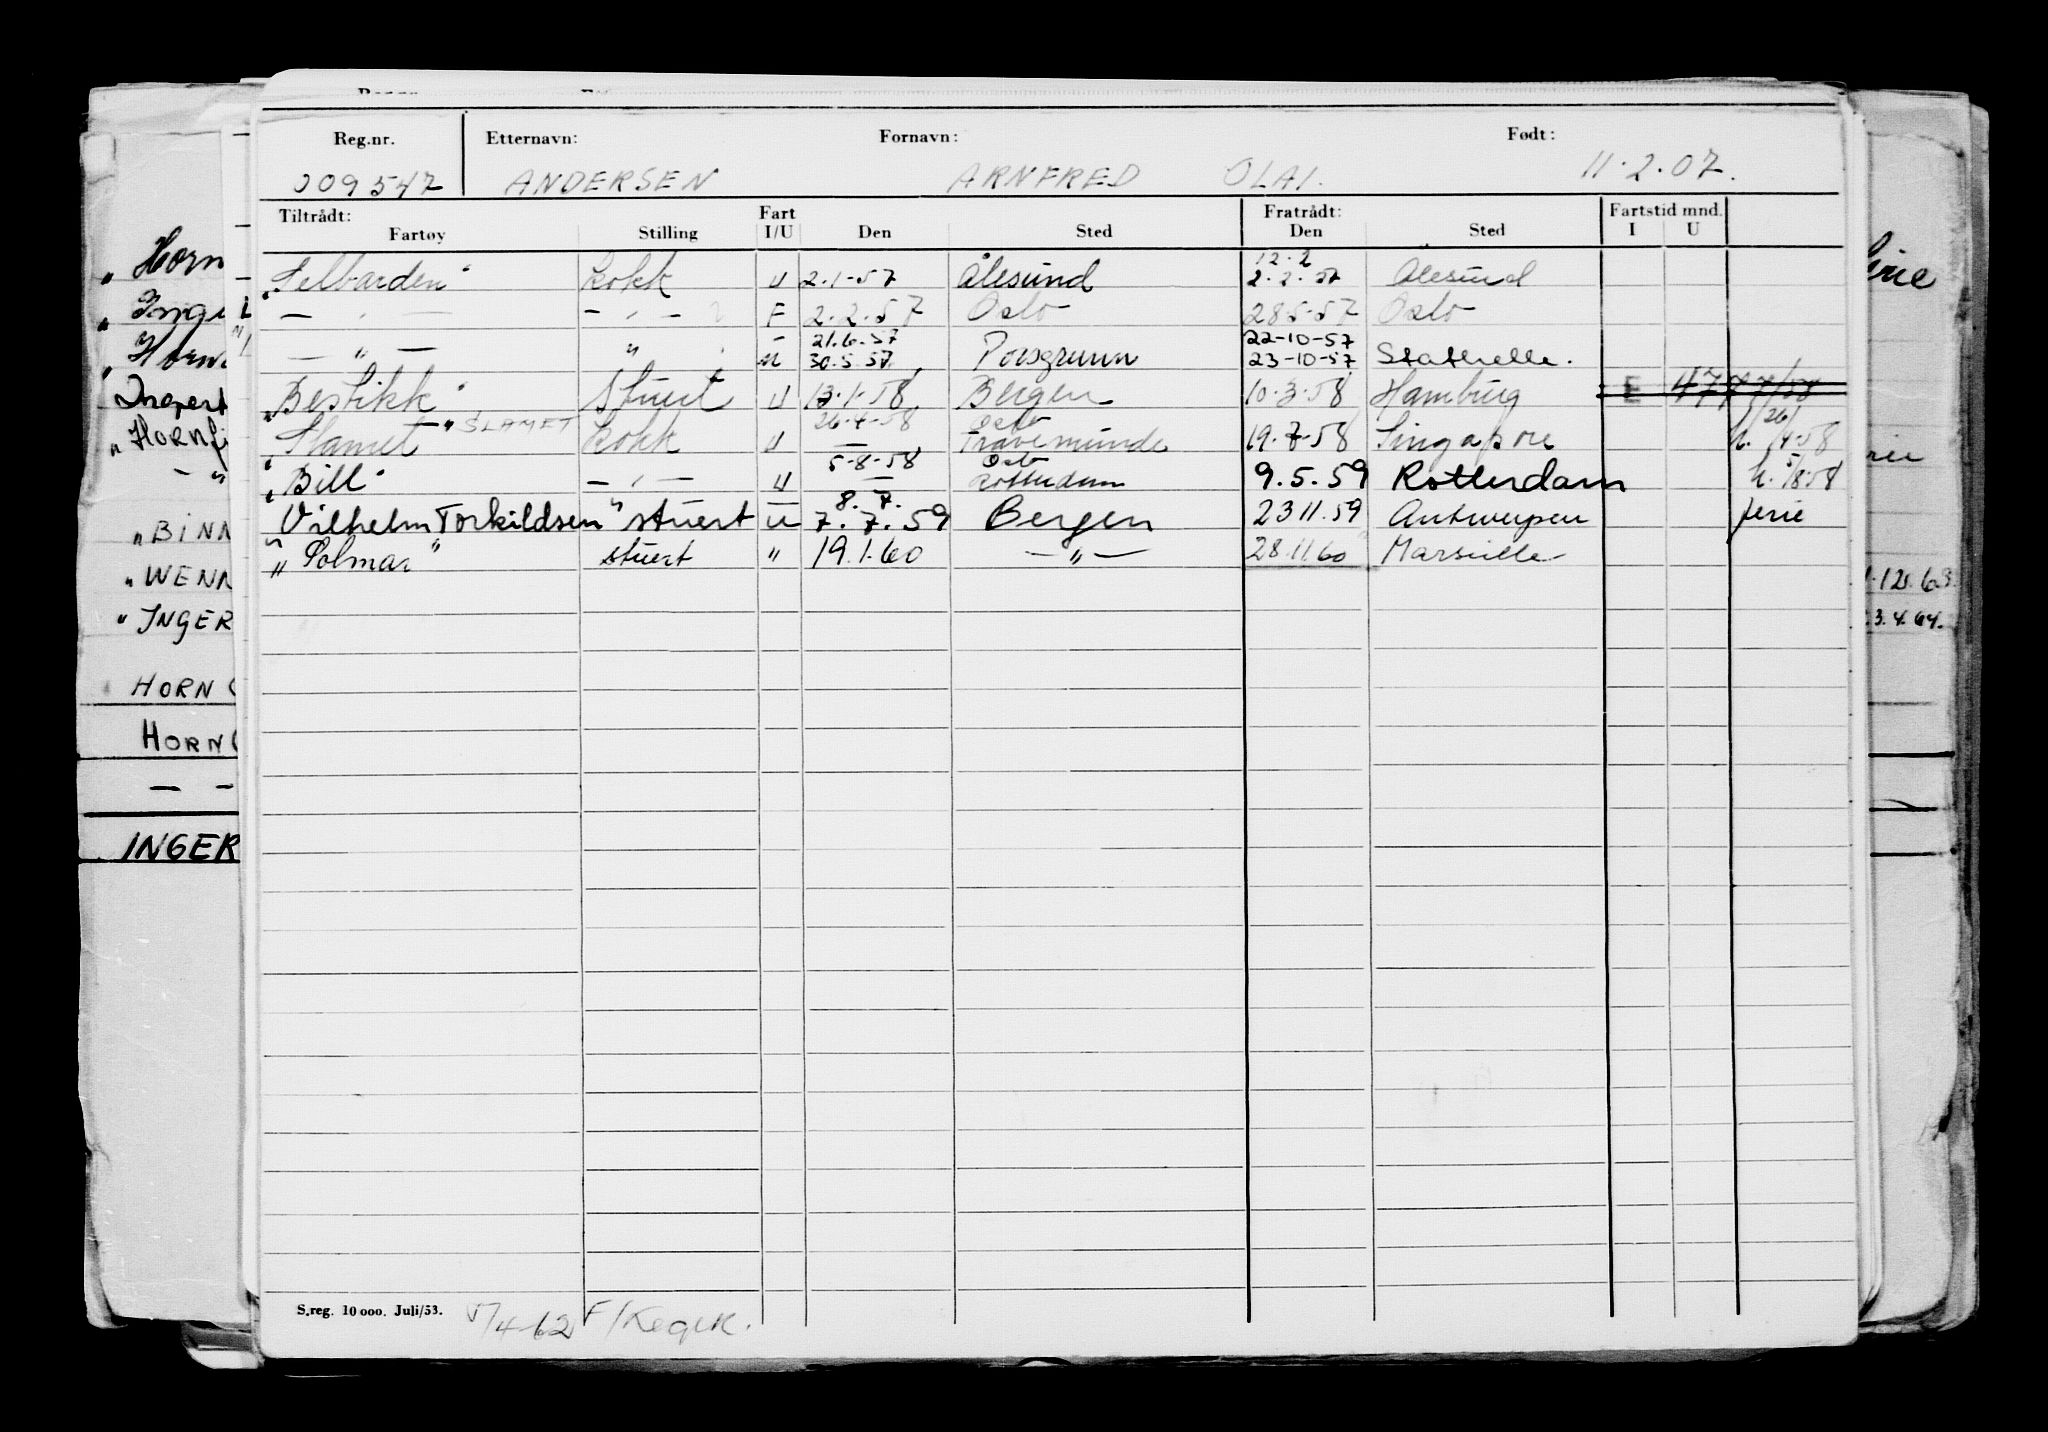 Reg.nr. Etternavn: Fornavn: Født:
009547 ANDERSEN ARNFRED OLAI. 11.2.07.
Tiltrådt: Fart Fratrådt: Fartstid mnd.
Fartøy Stilling I/U Den Sted Den Sted I U
12.2
"Selbarden" kokk U 2.1-57 Ålesund 2.2.57 Ålesund
— " — — " — F 2.2.57 Oslo 28.5-57 Oslo
21.6.57 22-10-57
— " — " U 30.5.57. Porsgrunn 23-10-57 Stathelle.
"Bestikk" Stuert U 13.1.58 Bergen 10.3.58 Hamburg E 477 7/58
26.4-58 Oslo
"Slamet" "SLAMET kokk U — Travemünde 19.7-58 Singapore h. 26/4-58
5-8-58 Oslo
"Bill" — " — U — Rotterdam 9.5.59 Rotterdam h. 5/8.58
8. 7.
"Vilhelm Torkildsen" stuert U 7.7.59 Bergen 23 11.59 Antwerpen ferie
"Polmar" stuert " 19.1.60 — " — 28.11.60 Marseille
S.reg. 10 000. Juli/53.
/4-62 F/
"Horn
"Horn
"HORNfi
"BINN
"WENN
"INGER
HORN
HORN
— —
INGER
12.63
3.4.64.